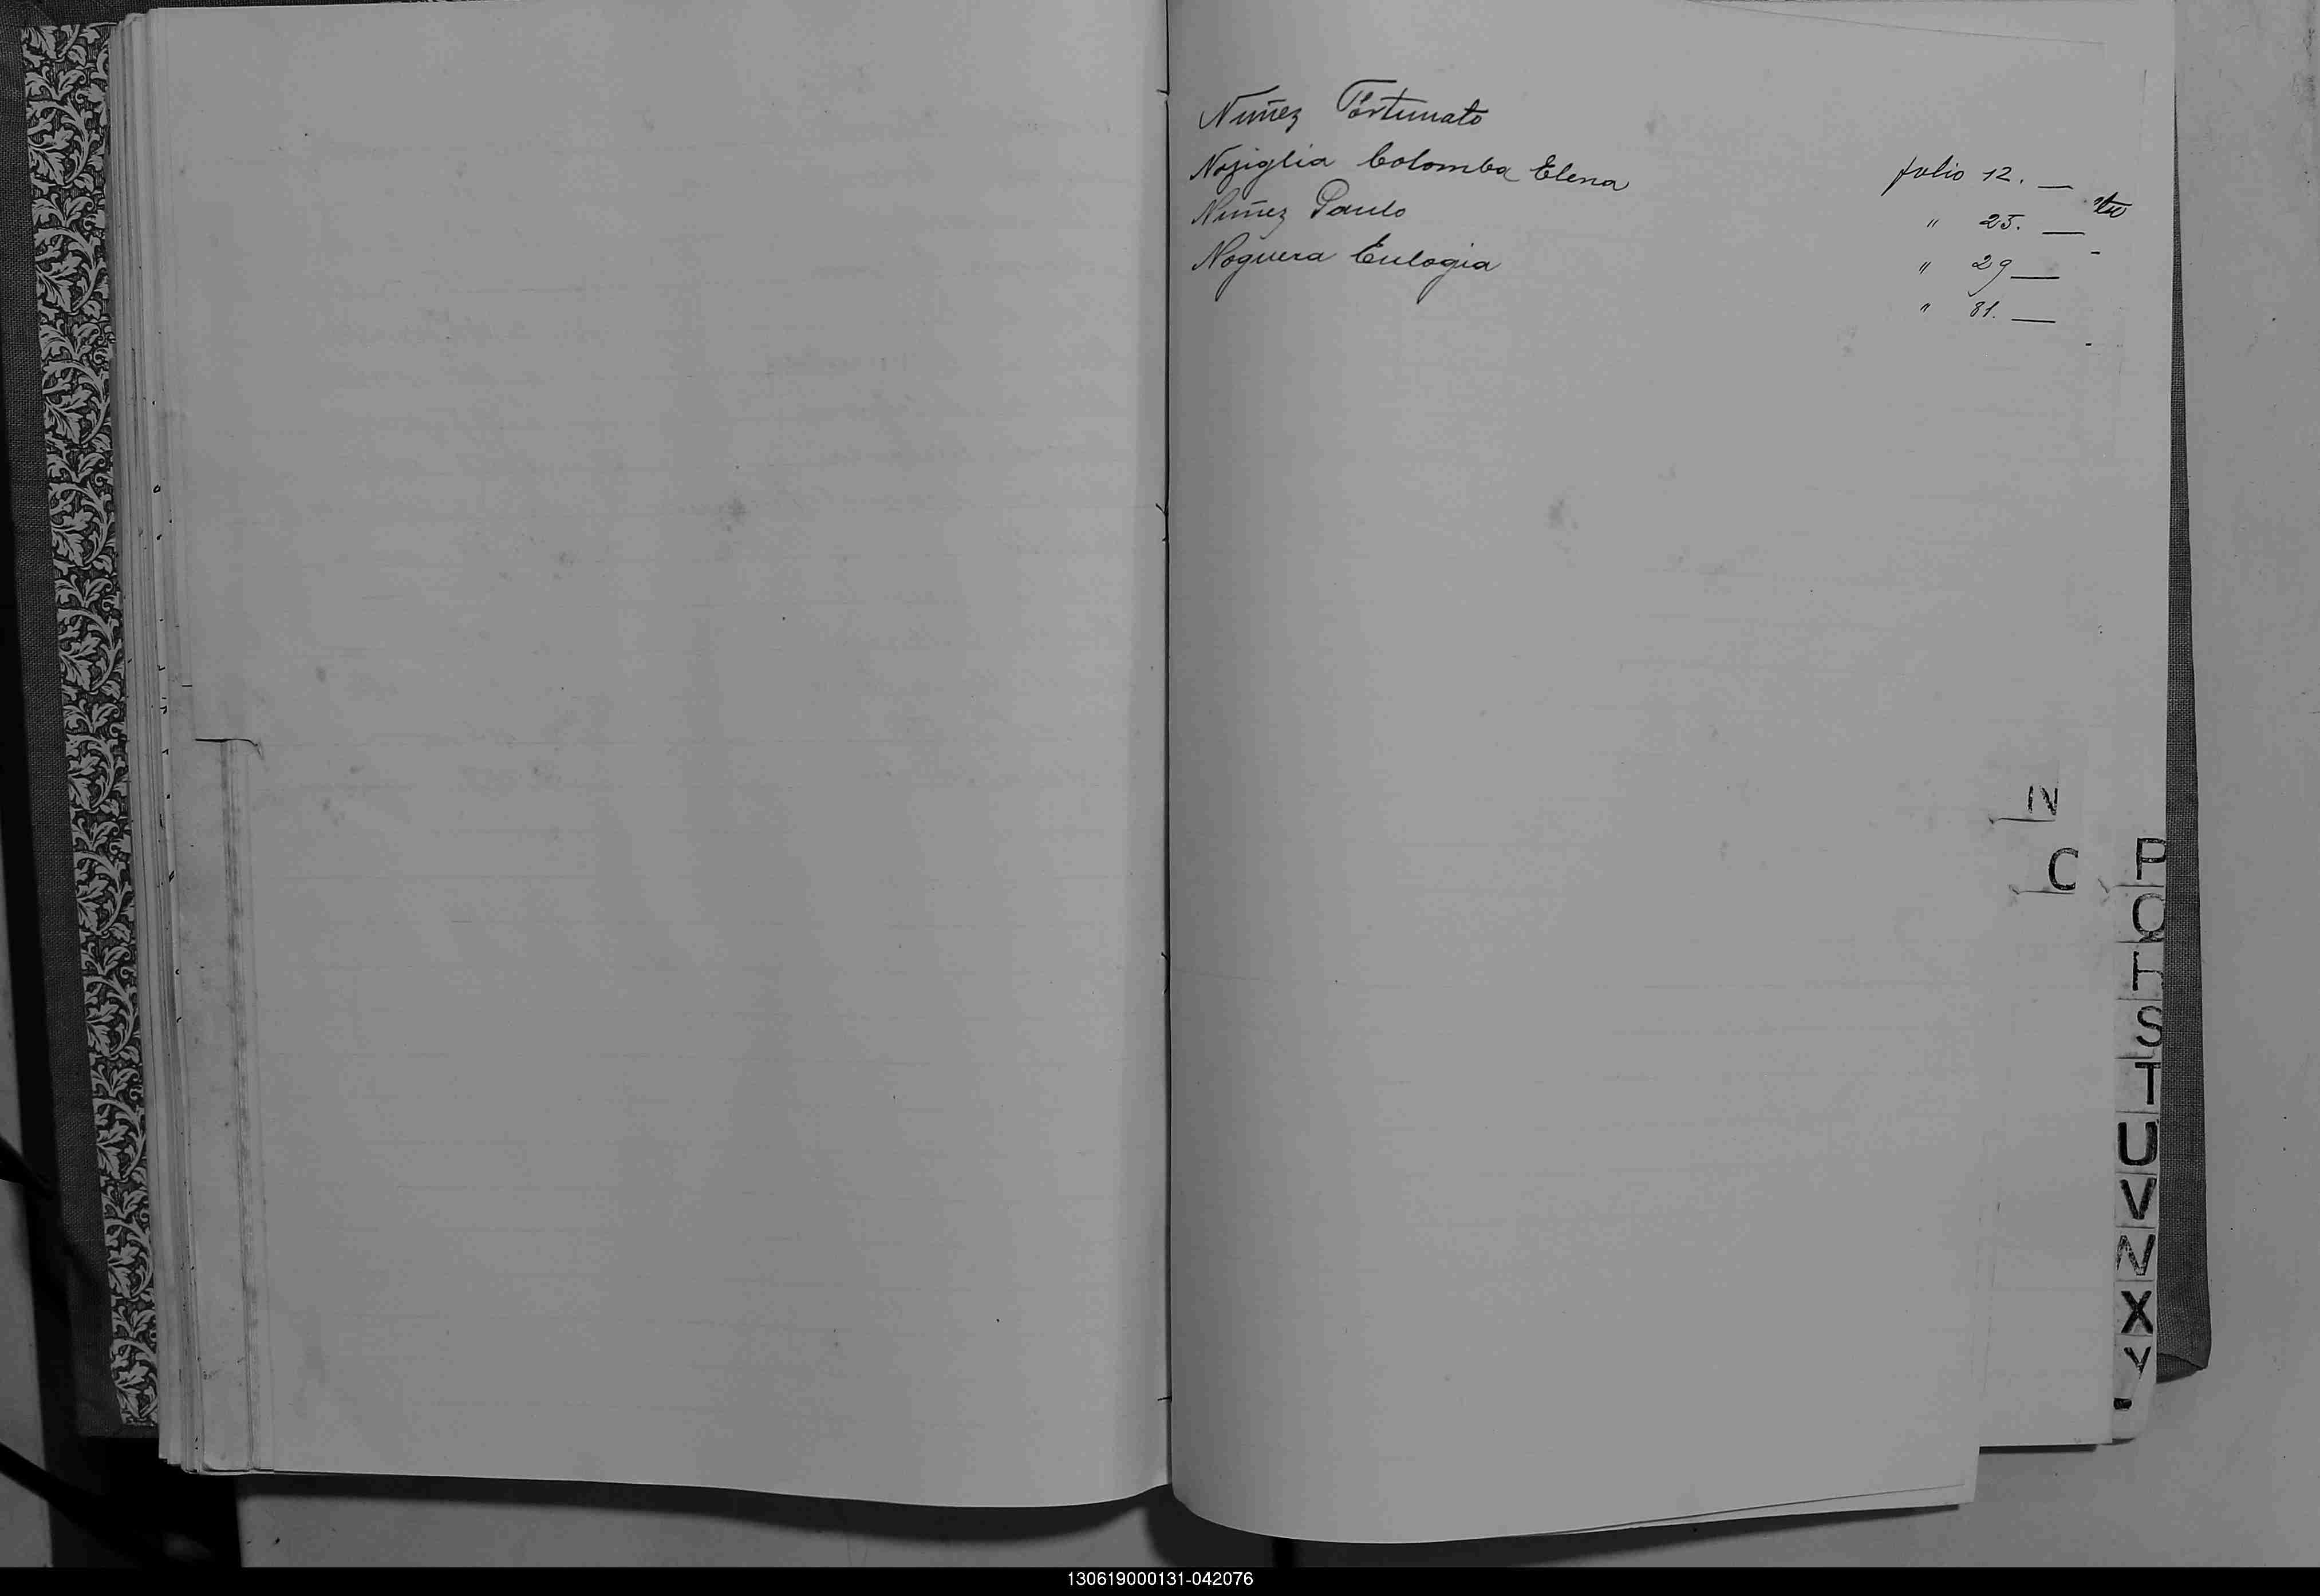 Nuñez Fortunato folio 12. —
Noziglia Colomba Elena " 25. —
Nuñez Paulo " 29 —
Noguera Eulogia " 31. —
N
C
P
Q
S
T
U
V
X
Y
130619000131-042076